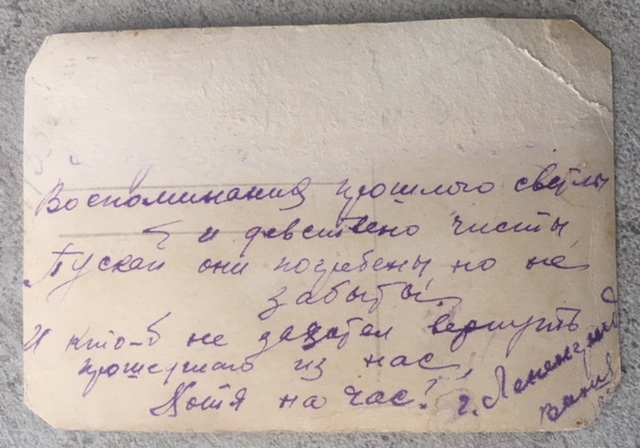 Воспоминания прошлого светлы
и девствено чисты
Пускай они погребены но не
забыты!
И кто-б не захотел вернуть
прошедшаго из нас,
Хотя на час!
г. Ленинград